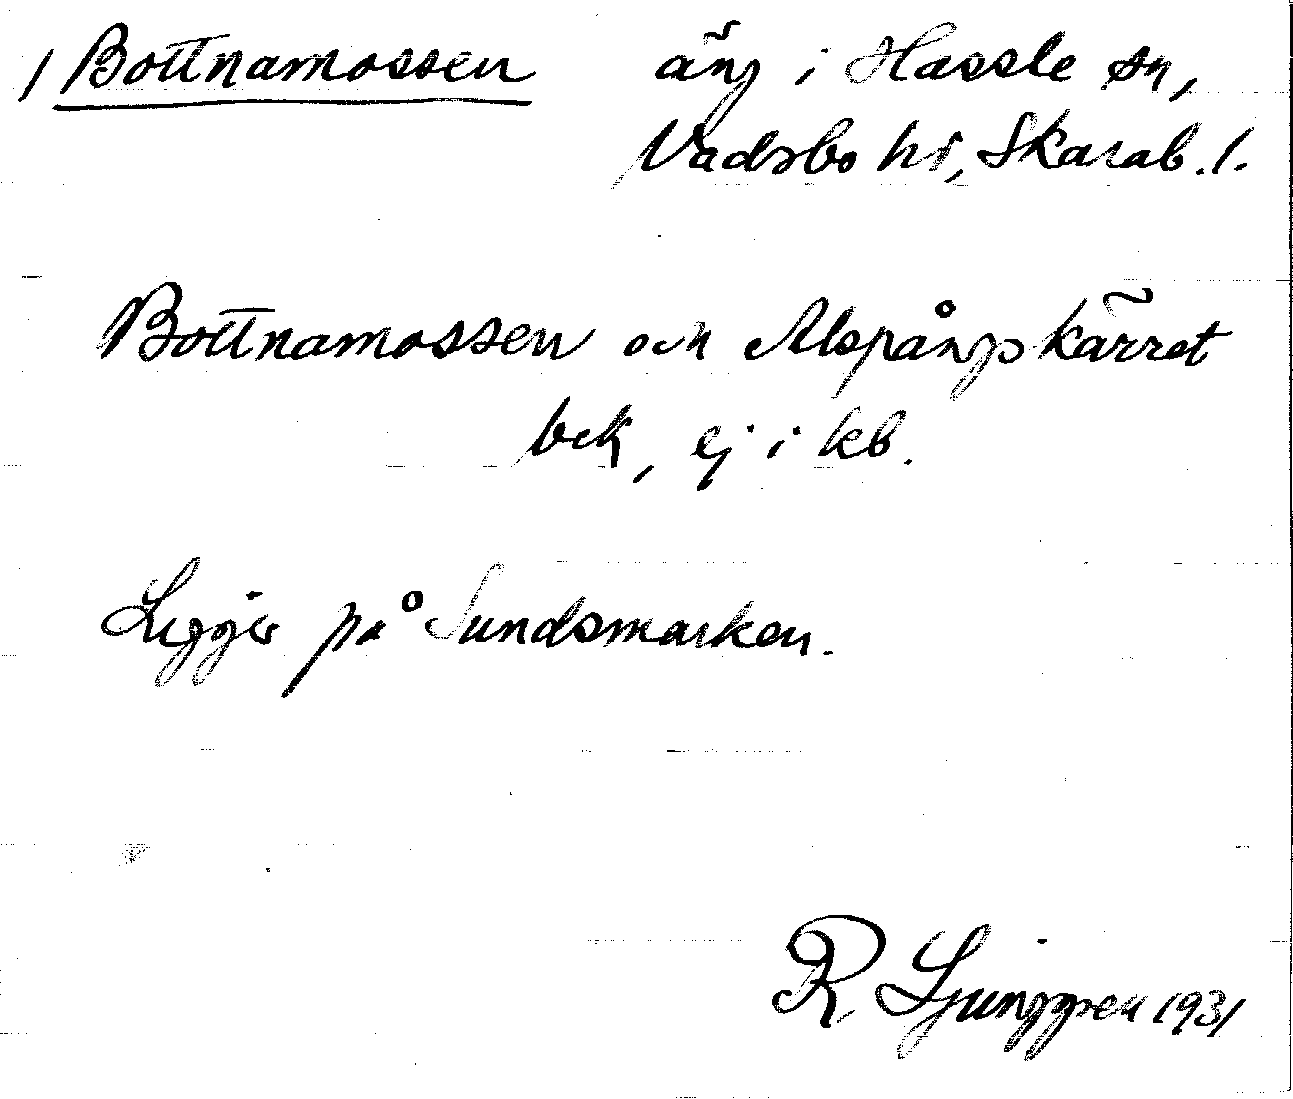 / Bottnamossen äng i Hassle sn,
Vadsbo hd, Skarab. l.
Bottnamossen och Alspångskärret
bek, ej i kb.
Ligger på Sundsmarken.
R. Ljunggren 1931